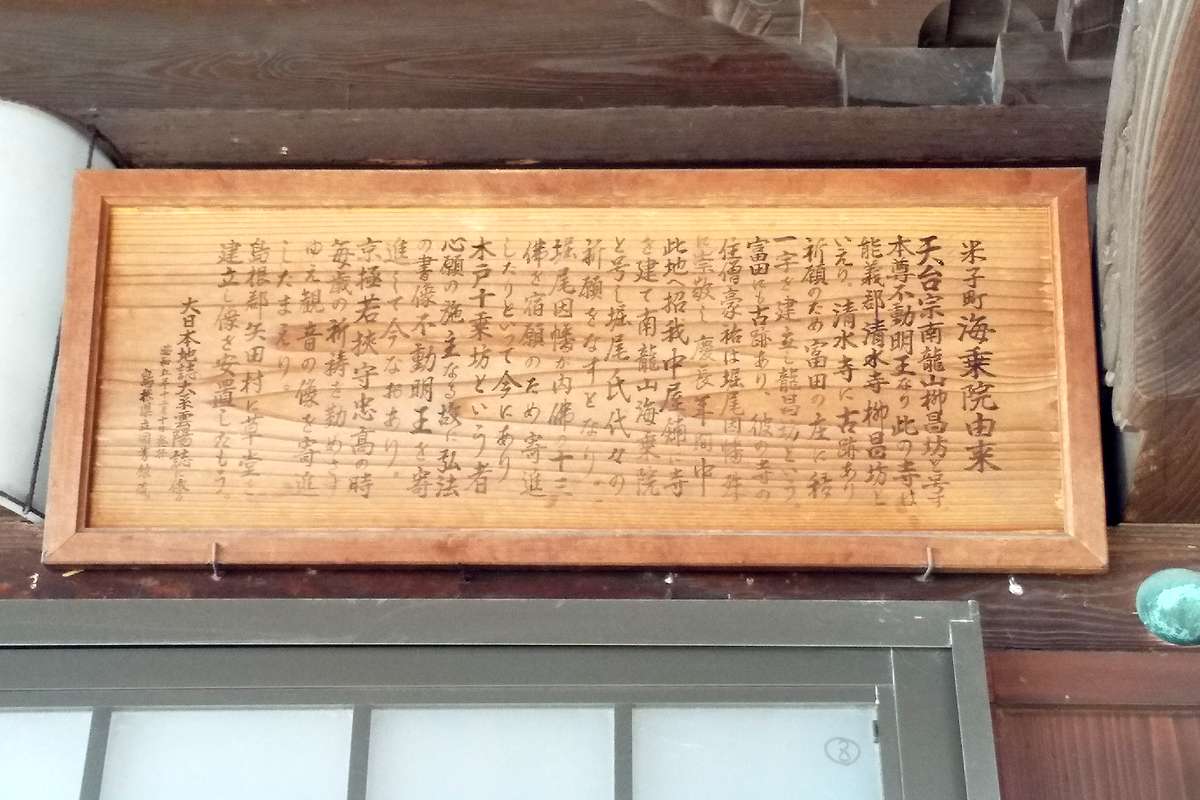 米子町海乗院由来
天台宗南龍山栁昌坊と号す
本尊不動明王なり此の寺は
能義郡清水寺栁昌坊と
いえり。清水寺に古跡あり
祈願のため富田の庄に移
一宇を建立し龍昌坊という
富田にも古跡あり、彼の寺の
住僧豪祐は堀尾因幡殊
に崇敬し慶長年間中
此地へ招我中屋鋪に寺
を建て南龍山海乗院
と号し堀尾氏代々の
祈願をなすとなり。
堀尾因幡が内佛の十三
佛を宿願のため寄進
したりといって今にあり
木戸十乗坊という者
心願の施主なる故に弘法
の書像不動明王を寄
進して今なおあり。
京極若狹守忠高の時
毎歳の祈祷を勤めさす
ゆえ観音の像を寄進
したまえり。
島根郡矢田村に草堂
建立し像を安置しなもう
大日本地誌大系雲陽誌
島根県立図書館蔵
8